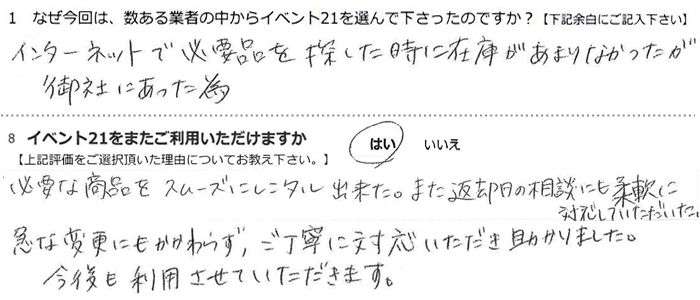 1 なぜ今回は、数ある業者の中からイベント21を選んで下さったのですか？【下記余白にご記入下さい】
インターネットで必要品を探した時に在庫があまりなかったが
御社にあった為
8 イベント21をまたご利用いただけますか はい いいえ
【上記評価をご選択頂いた理由についてお教え下さい。】
必要な商品をスムーズにレンタル出来た。また返却日の相談にも柔軟に
対応していただいた。
急な変更にもかかわらず,ご丁寧に対応いただき助かりました。
今後も利用させていただきます。